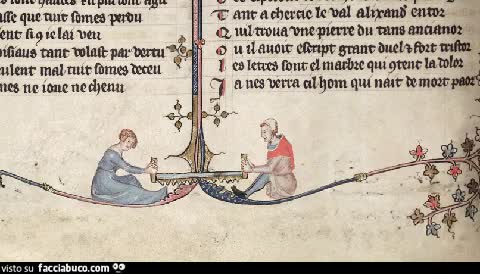 asse que tuit somes perdu
ient si q ie lai veu
oisiaus tant volast par vertu
eulent mal tuit somes deceu
mes ne ioue ne chenu
Tant a chercie le val alixand entor
Quil troua vne pierre du tans ancianor
Ou il auoit escript grant duel et fort tristor
Les letres sont el marbre qui 9tent la dolor
Ja nes verra cil hom qui nait de mort paor
visto su facciabuco.com